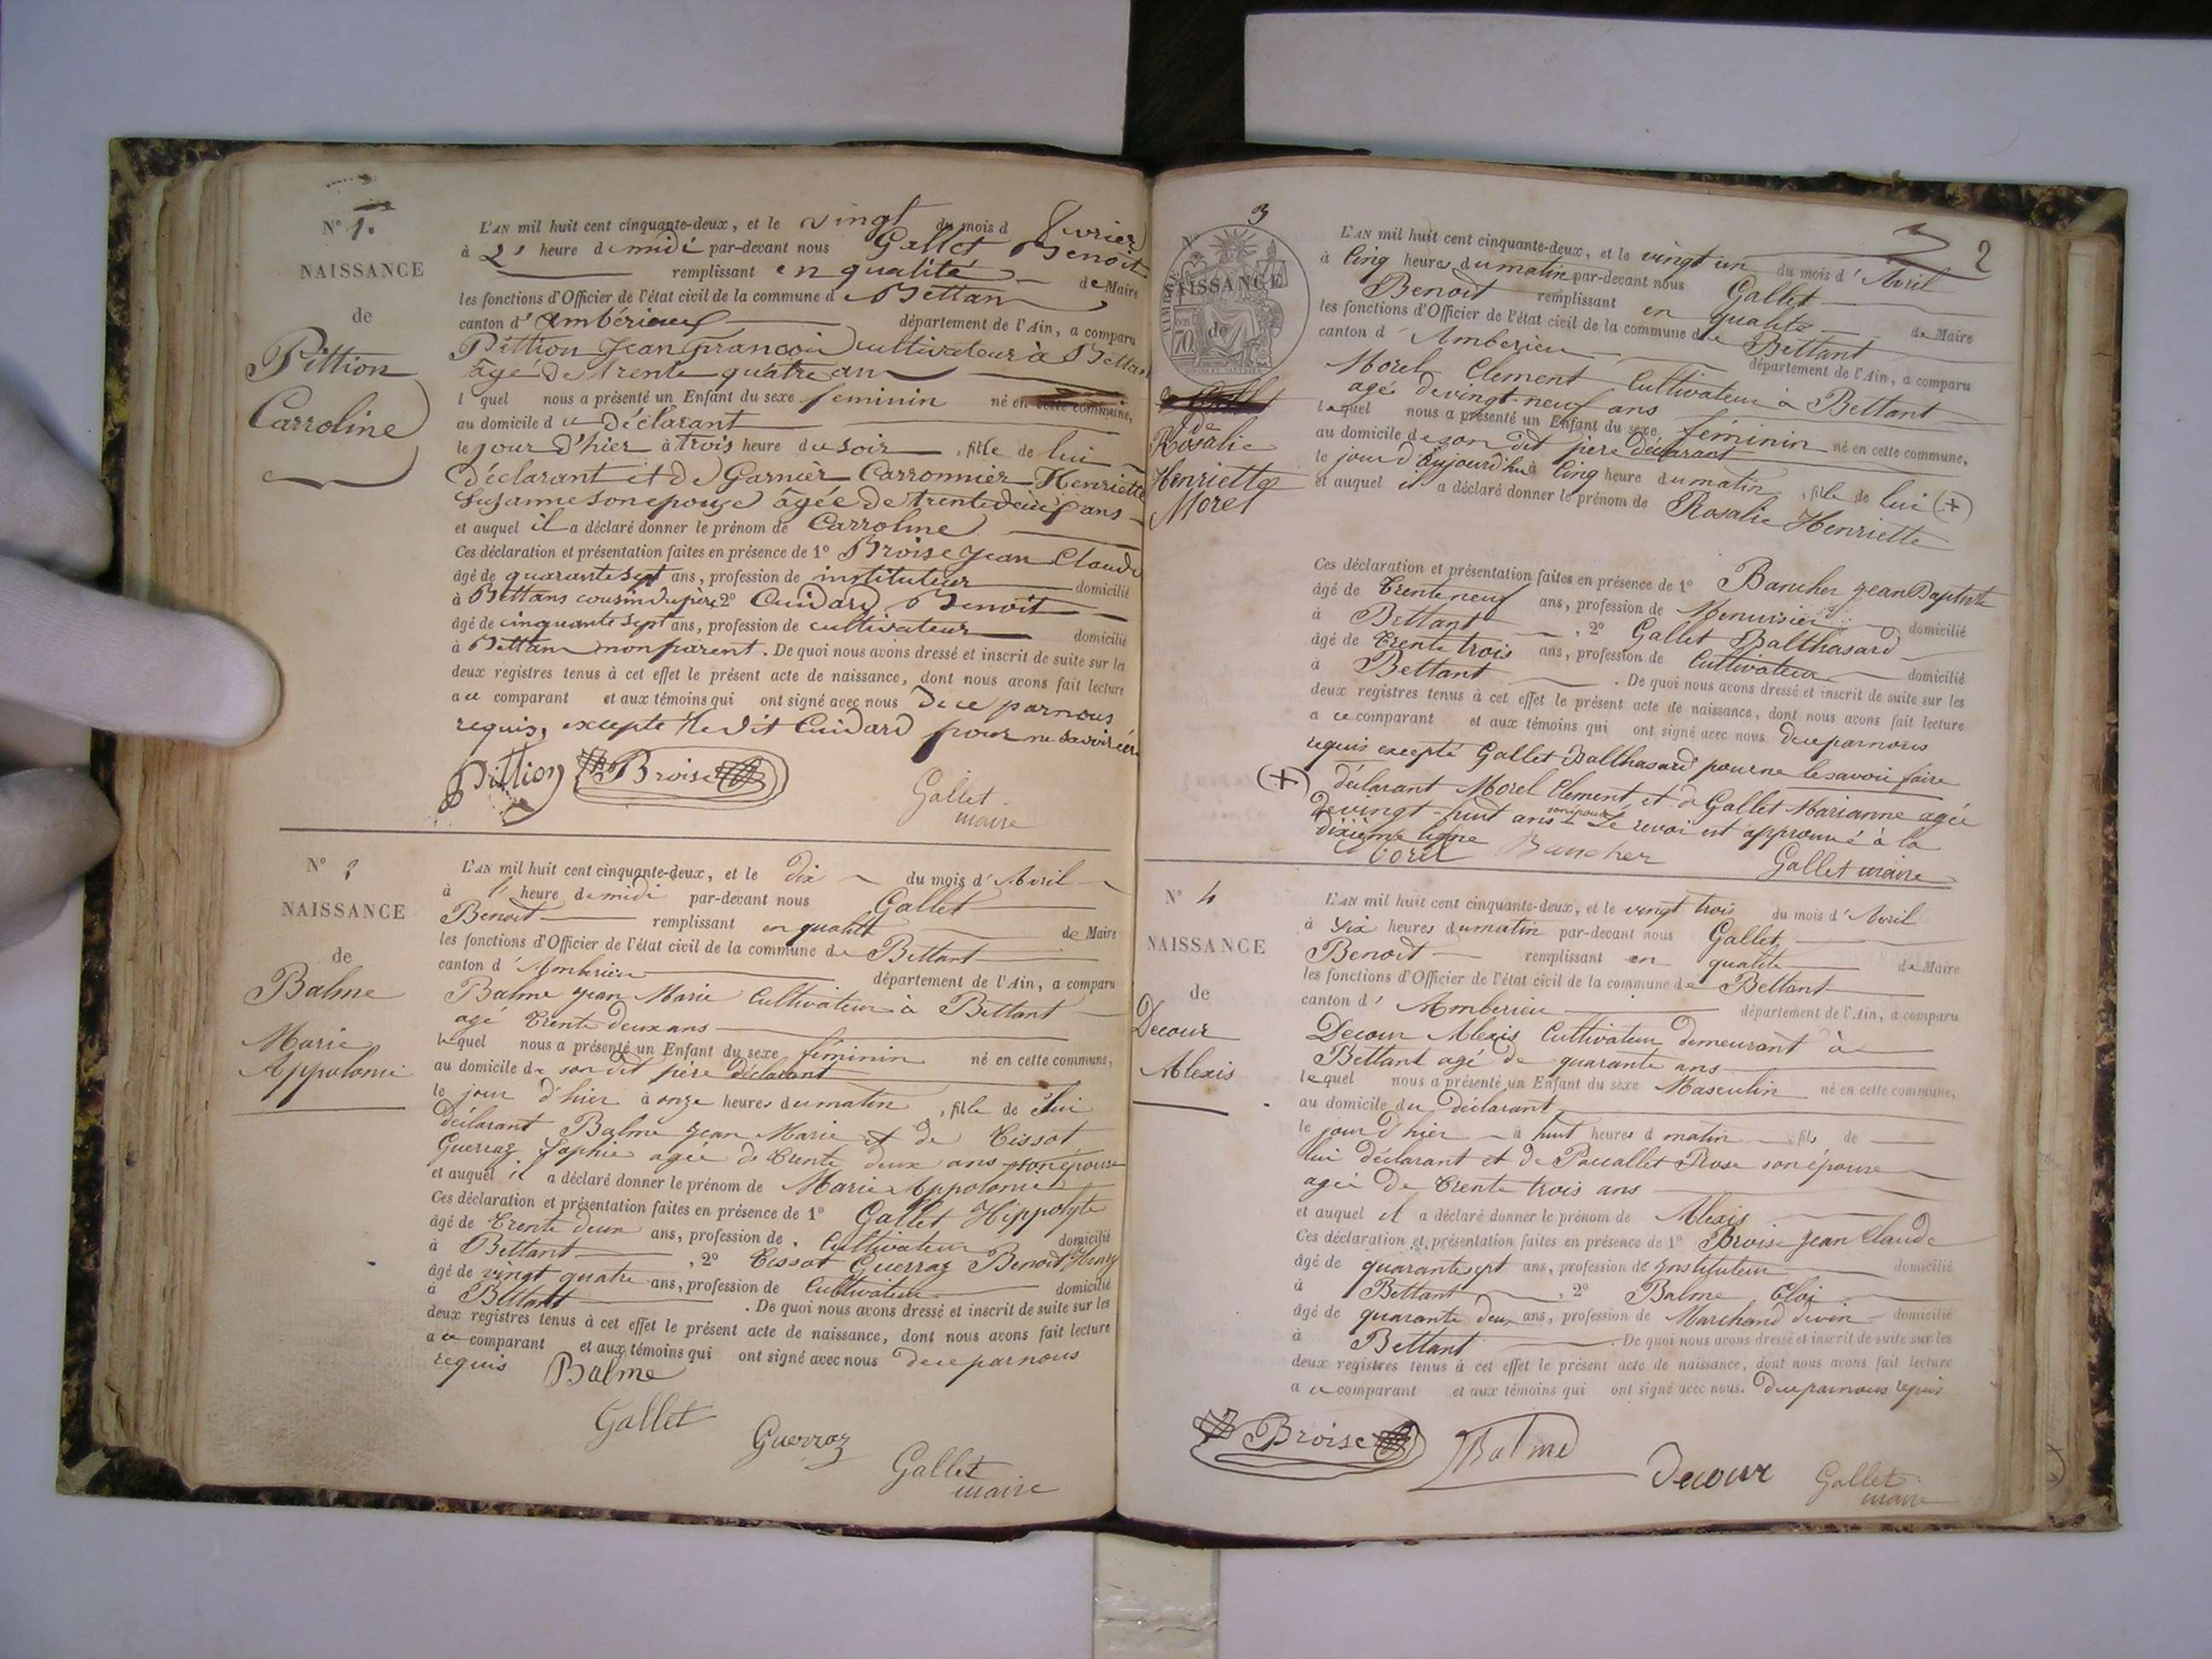 N° 1.
NAISSANCE
de
Pittion
Carroline
L'AN mil huit cent cinquante-deux, et le vingt du mois d fevrier
à 2 heure de midi par-devant nous Gallet Benoit
remplissant en qualité de Maire
les fonctions d'Officier de l'état civil de la commune de Bettan
canton d'Ambérieux département de l'Ain, a comparu
Pittion Jean françois cultivateur à Bettan
âgé de trente quatre an
lequel nous a présenté un Enfant du sexe feminin né en cette commune,
au domicile du Déclarant
le jour d'hier à trois heure du soir, fille de lui
Déclarant et de Garnier Carronnier Henriette
Susanne son epouse âgée de trente deux ans
et auquel il a déclaré donner le prénom de Carroline
Ces déclaration et présentation faites en présence de 1° Broise Jean Claude
âgé de quarante sept ans, profession de instituteur domicilié
à Bettans cousin du père 2° Cuidard Benoit
âgé de cinquante sept ans, profession de cultivateur domicilié
à Bettan non parent. De quoi nous avons dressé et inscrit de suite sur les
deux registres tenus à cet effet le présent acte de naissance, dont nous avons fait lecture
a ce comparant et aux témoins qui ont signé avec nous De ce par nous
requis, excepté le dit Cuidard pour ne savoir
Pittion Broise
Gallet
maire
N° 2
NAISSANCE
de
Balme
Marie
Appolonie
L'AN mil huit cent cinquante-deux, et le dix du mois d'Avril
à 1 heure de midi par-devant nous Gallet
Benoit remplissant en qualité de Maire
les fonctions d'Officier de l'état civil de la commune de Bettant
canton d'Amberieu département de l'Ain, a comparu
Balme Jean Marie Cultivateur à Bettant
agé trente deux ans
lequel nous a présenté un Enfant du sexe féminin né en cette commune,
au domicile de son dit père déclarant
le jour d'hier à onze heures du matin, fille de lui
déclarant Balme Jean Marie et de Tissot
Guerraz Sophie agée de trente deux ans son épouse
et auquel il a déclaré donner le prénom de Marie Appolonie
Ces déclaration et présentation faites en présence de 1° Gallet Hippolyte
âgé de trente deux ans, profession de Cultivateur domicilié
à Bettant, 2° Tissot Guerraz Benoit Henry
âgé de vingt quatre ans, profession de Cultivateur domicilié
à Bettant. De quoi nous avons dressé et inscrit de suite sur les
deux registres tenus à cet effet le présent acte de naissance, dont nous avons fait lecture
a ce comparant et aux témoins qui ont signé avec nous de ce par nous
requis Balme
Gallet
Guerraz
Gallet
maire
3
2
N°
NAISSANCE
TIMBRE
70
de
de
Rosalie
Henriette
Morel
L'AN mil huit cent cinquante-deux, et le vingt un du mois d'Avril
à Cinq heures du matin par-devant nous Gallet
Benoit remplissant en qualité de Maire
les fonctions d'Officier de l'état civil de la commune de Bettant
canton d'Amberieu département de l'Ain, a comparu
Morel Clement Cultivateur à Bettant
agé de vingt-neuf ans
lequel nous a présenté un Enfant du sexe féminin né en cette commune,
au domicile de son dit père déclarant
le jour d'aujourd'hui à Cinq heure du matin, fille de lui (+)
et auquel il a déclaré donner le prénom de Rosalie Henriette
Ces déclaration et présentation faites en présence de 1° Bancher Jean Baptiste
âgé de trente neuf ans, profession de Menuisier domicilié
à Bettant, 2° Gallet Balthasard
âgé de trente trois ans, profession de Cultivateur domicilié
à Bettant. De quoi nous avons dressé et inscrit de suite sur les
deux registres tenus à cet effet le présent acte de naissance, dont nous avons fait lecture
a ce comparant et aux témoins qui ont signé avec nous de ce par nous
requis excepté Gallet Balthasard pour ne le savoir faire
(+) déclarant Morel Clement et de Gallet Marianne agée
de vingt-huit ans son épouse Le renvoi est approuvé à la
dixième ligne
Morel Bancher Gallet maire
N° 4
NAISSANCE
de
Decour
Alexis
L'AN mil huit cent cinquante-deux, et le vingt trois du mois d'Avril
à Six heures du matin par-devant nous Gallet
Benoit remplissant en qualité de Maire
les fonctions d'Officier de l'état civil de la commune de Bettant
canton d'Amberieu département de l'Ain, a comparu
Decour Alexis Cultivateur demeurant à
Bettant agé de quarante ans
lequel nous a présenté un Enfant du sexe Masculin né en cette commune,
au domicile du Déclarant
le jour d'hier à huit heures d matin, fils de
lui déclarant et de Paccallet Rose son épouse
agée de trente trois ans
et auquel il a déclaré donner le prénom de Alexis
Ces déclaration et présentation faites en présence de 1° Broise Jean Claude
âgé de quarante sept ans, profession de Instituteur domicilié
à Bettant, 2° Balme Eloi
âgé de quarante deux ans, profession de Marchand de vin domicilié
à Bettant. De quoi nous avons dressé et inscrit de suite sur les
deux registres tenus à cet effet le présent acte de naissance, dont nous avons fait lecture
a ce comparant et aux témoins qui ont signé avec nous. de ce par nous requis
Broise Balme Decour Gallet
maire